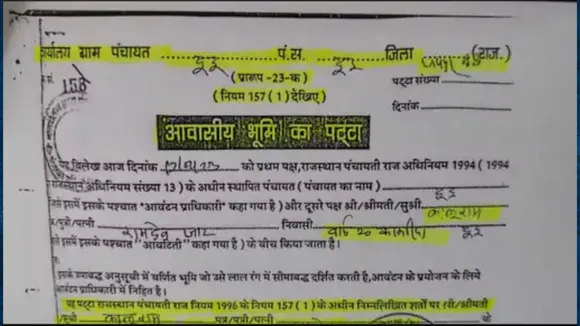 कार्यालय ग्राम पंचायत दूदू पं.स. दूदू जिला (राज.)
(प्रारूप-23-क)
158 (नियम 157 (1) देखिए) पट्टा संख्या
दिनांक
आवासीय भूमि का पट्टा
यह विलेख आज दिनांक को प्रथम पक्ष,राजस्थान पंचायती राज अधिनियम 1994 ( 1994
राजस्थान अधिनियम संख्या 13 ) के अधीन स्थापित पंचायत ( पंचायत का नाम ) दूदू
जिसे इसके पश्चात "आवंटन प्राधिकारी" कहा गया है ) और दूसरे पक्ष श्री/श्रीमती/सुश्री. कालूराम
पुत्र/पुत्री/पत्नी रामदेव जाट निवासी वार्ड 20 दूदू
जिसे इसमें इसके पश्चात "आवंटिती" कहा गया है ) के बीच किया जाता है।
इसके उपाबद्ध अनुसूची में वर्णित भूमि जो उसे लाल रंग में सीमाबद्ध दर्शित करती है,आवंटन के प्रयोजन के लिये
आवंटन प्राधिकारी में निहित है।
यह पट्टा राजस्थान पंचायती राज नियम 1996 के नियम 157 (1) के अधीन निम्नलिखित शर्तों पर श्री/श्रीमती
/सुश्री कालूराम पुत्र/पुत्री/पत्नी